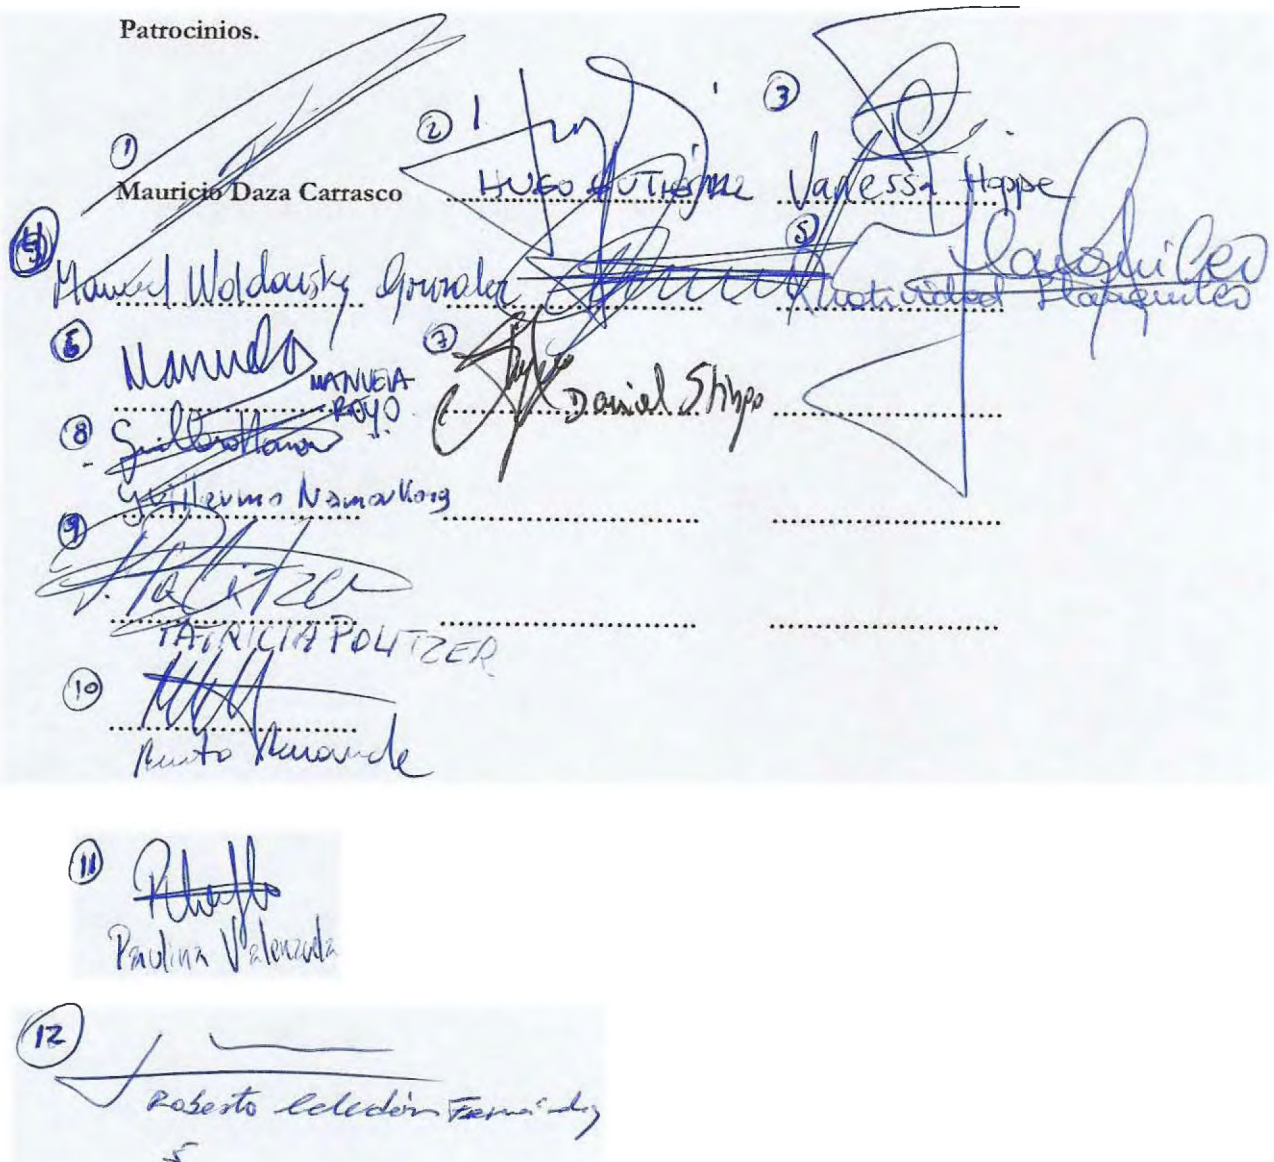 Patrocinios.
1
Mauricio Daza Carrasco
2
HUGO GUTIÉRREZ
3
Vanessa Hoppe
4
Manuel Woldarsky Gonzalez
5
Llanquileo
Natividad Llanquileo
6
Manuela
MANUELA
ROYO
7
Daniel Stingo
8
Guillermo Namor Kong
9
P. Politzer
PATRICIA POLITZER
10
11
Paulina Valenzuela
12
Roberto Celedón Fernández